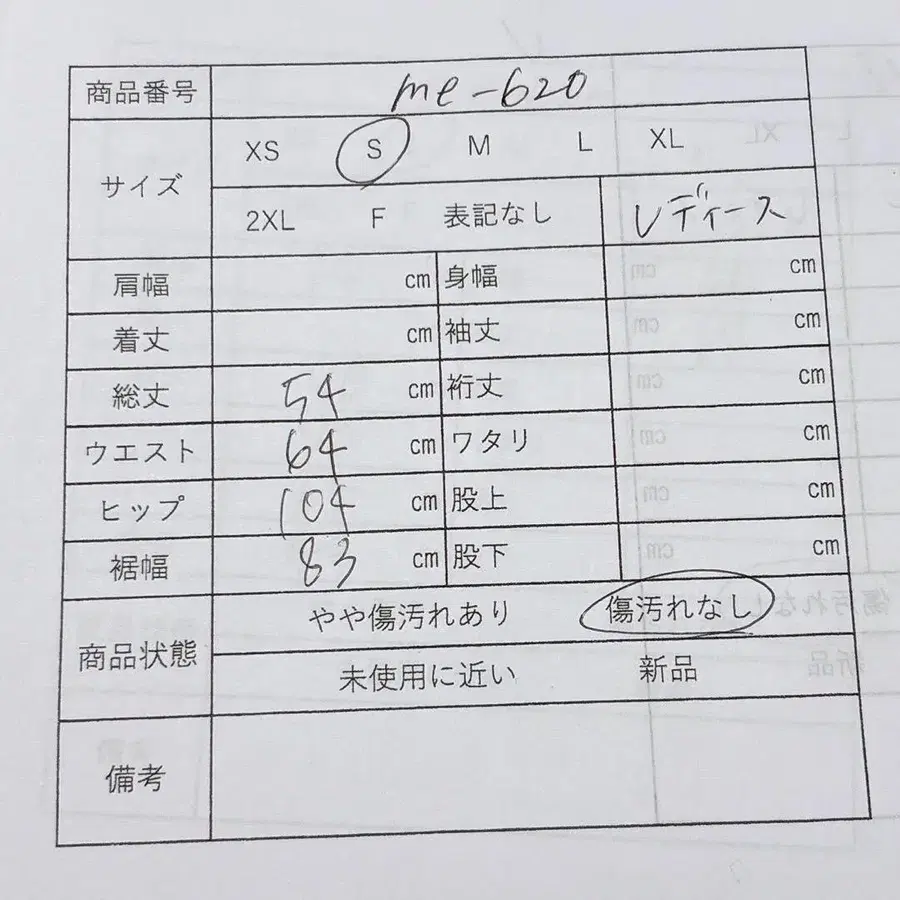 商品番号 me-620
サイズ XS S M L XL
2XL F 表記なし レディース
肩幅 cm 身幅 cm
着丈 cm 袖丈 cm
総丈 54 cm 裄丈 cm
ウエスト 64 cm ワタリ cm
ヒップ 104 cm 股上 cm
裾幅 83 cm 股下 cm
商品状態 やや傷汚れあり 傷汚れなし
未使用に近い 新品
備考